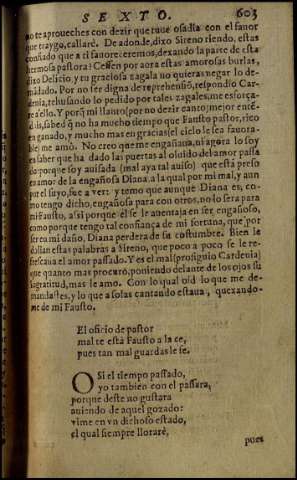 SEXTO. 603
no te aproueches con dezir que tuue osadia con el fauor
que traygo, callarè. De adonde, dixo Sireno riendo, estas
confiado que a ti fauoreceremos, dexando la parte de esta
hermosa pastora? Cessen por aora estas amorosas burlas,
dixo Delicio, y tu graciosa zagala no quieras negar lo de-
mãdado. Por no ser digna de reprehensiõ, respondiò Car-
denia, rehusando lo pedido por tales zagales, me esforça-
re a ello. Y porq̃ mi llanto (por no dezir canto) mejor enté-
dais, sabed q̃ no ha mucho tiempo que Fausto pastor, rico
en ganado, y mucho mas en gracias (el cielo le sea fauora-
ble me amò. No creo que me engañaua, ni agora lo soy
es saber que ha dado las puertas al oluido del amor passa
do, porque soy auisada (mal aya tal auiso) que està preso
en amor de la engañosa Diana. a la qual por mi mal, y aun
por el suyo, fue a ver: y temo que aunque Diana es, co-
mo tengo dicho, engañosa para con otros, no lo sera para
mi Fausto, assi porque èl se le auentaja en ser engañoso,
como porque tengo tal confiança de mi fortuna, que por
ser en mi daño, Diana perdera de su costumbre. Bien le
dolian estas palabras a Sireno, que poco a poco se le re-
frescaua el amor passado. Y es el mal (prosiguio Cardenia)
que quanto mas procuro, poniendo delante de los ojos su
ingratitud, mas le amo. Con lo qual oid lo que me de-
mandastes, y lo que a solas cantando estaua, quexando-
me de mi Fausto.
El oficio de pastor
mal te està Fausto a la fe,
pues tan mal guardas le fe.
O Si el tiempo passado,
yo tambien con el passara,
porque deste no gustara
auiendo de aquel gozado:
vime en vn dichoso estado,
el qual siempre lloraré,
pues